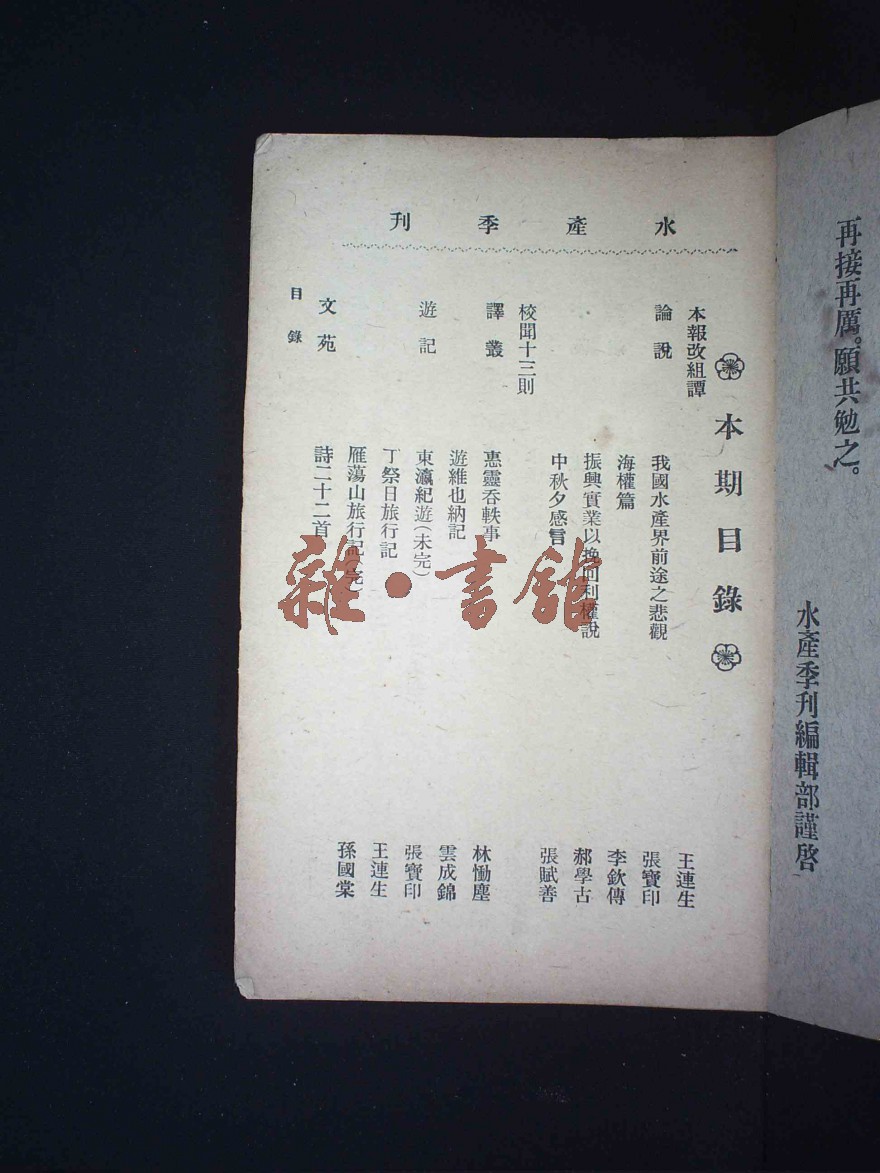 再接再厲。願共勉之。
水產季刊編輯部謹啓
水產季刊
本期目錄
本報改組譚 王連生
論說 我國水產界前途之悲觀 張寶印
海權篇 李欽傳
振興實業以挽回利權說 郝學古
中秋夕感言 張賦善
校聞十三則
譯叢 惠靈吞軼事 林慟塵
遊維也納記 雲成錦
遊記 東瀛紀遊(未完) 張寶印
丁祭日旅行記 王連生
雁蕩山旅行記(完) 孫國棠
文苑 詩二十二首
目錄
雜·書館